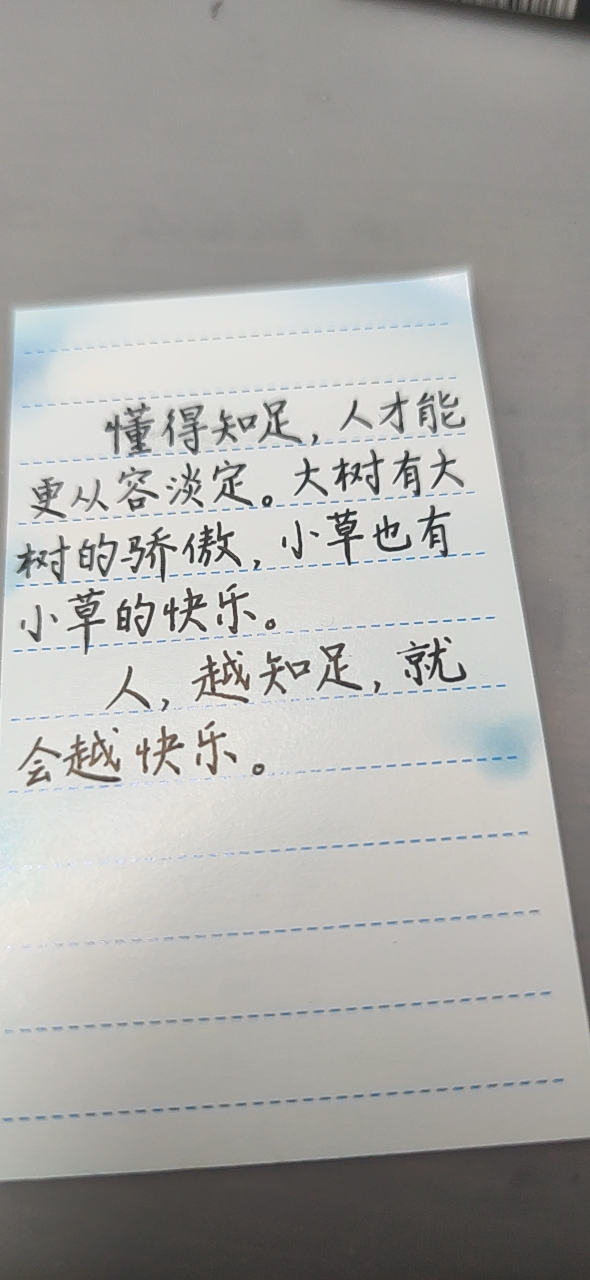 懂得知足，人才能
更从容淡定。大树有大
树的骄傲，小草也有
小草的快乐。
人，越知足，就
会越快乐。